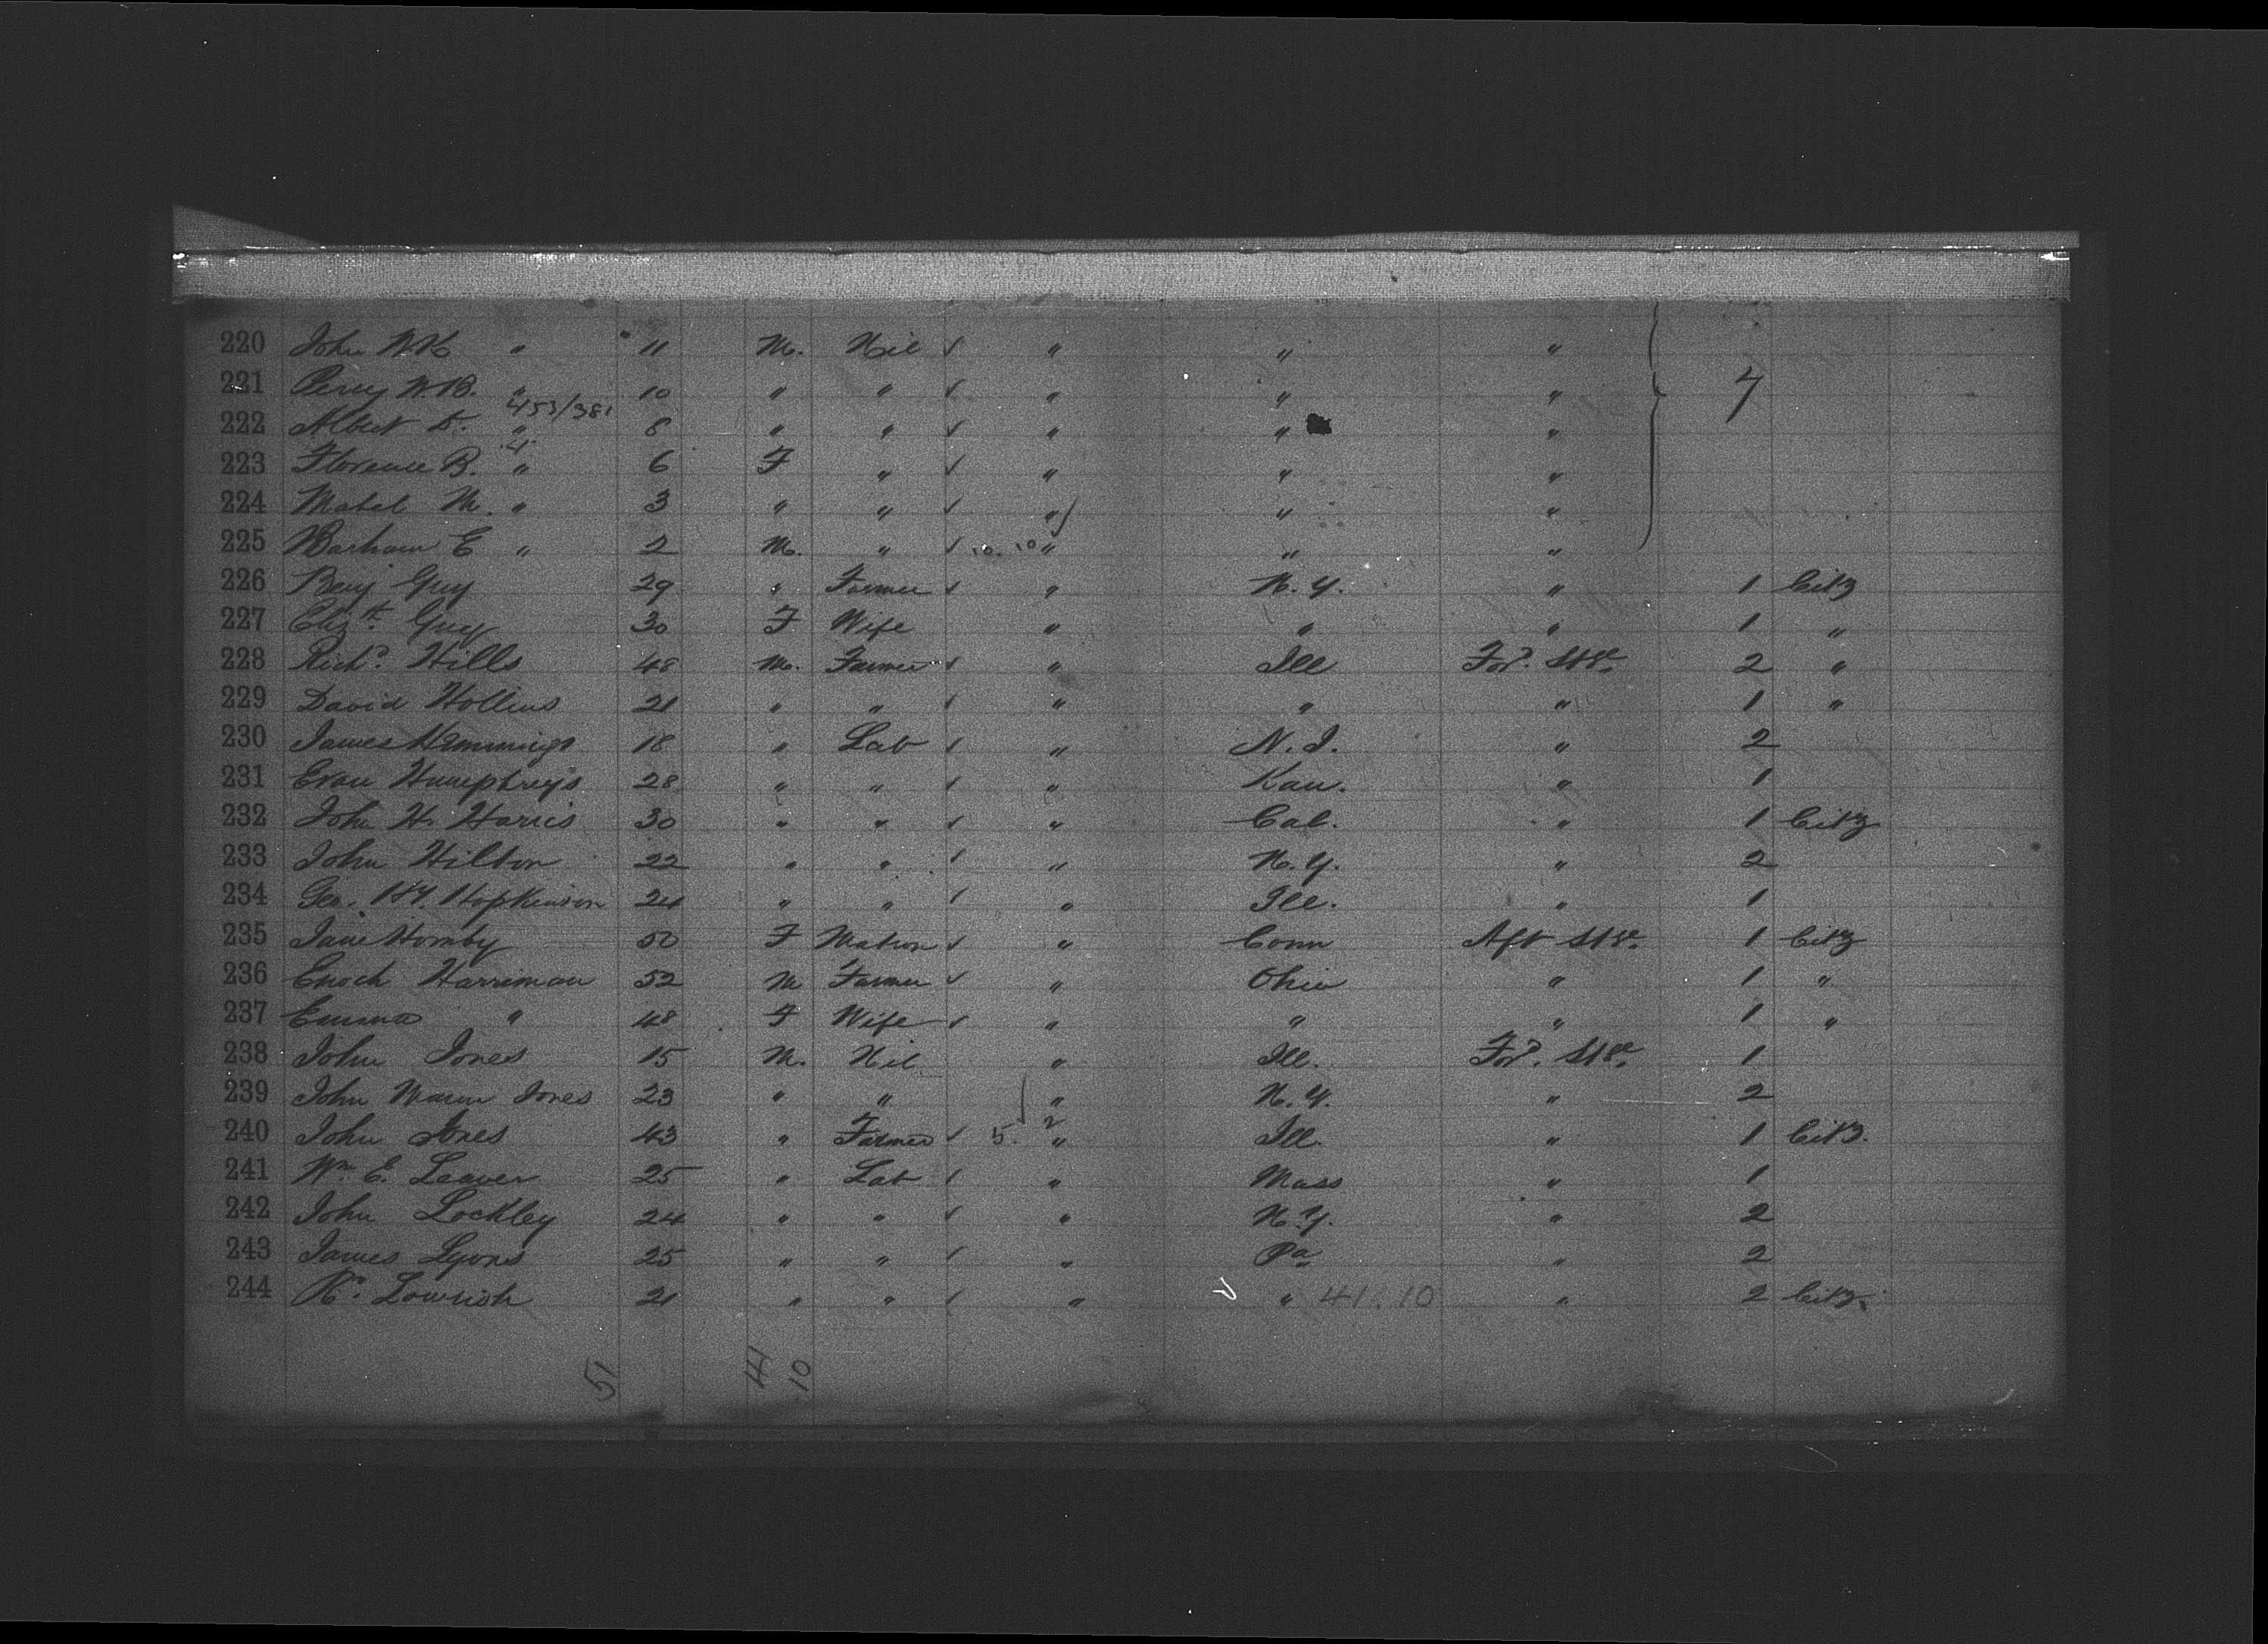 220 John W.H. " 11 M. Nil ✓ " " "
221 Percy W.B. " 10 " " ✓ " " " 7
453/381
222 Albert D. " 8 " " ✓ " " "
4
223 Florence B. " 6 F " ✓ " " "
224 Mabel M. " 3 " " ✓ " " "
225 Barham E " 2 M. " ✓ 10. 10 " " "
226 Benj Guy 29 " Farmer ✓ " N.Y. " 1 Citz
227 Elizth. Guy 30 F Wife " " " 1 "
228 Richd. Hills 48 M. Farmer ✓ " Ill For'd. St'ge 2 "
229 David Hollins 21 " " ✓ " " " 1 "
230 James Hemmings 18 " Lab ✓ " N.J. " 2
231 Evan Humphreys 28 " " ✓ " Kan. " 1
232 John H. Harris 30 " " ✓ " Cal. " 1 Citz
233 John Hilton 22 " " ✓ " N.Y. " 2
234 Geo. Hy. Hopkinson 24 " " ✓ " Ill. " 1
235 Jane Hornby 50 F Matron ✓ " Conn Aft St'ge 1 Citz
236 Enoch Harriman 52 M Farmer ✓ " Ohio " 1 "
237 Emma " 48 F Wife ✓ " " " 1 "
238 John Jones 15 M. Nil " Ill. For'd. St'ge 1
239 John Jones 23 " " " N.Y. " 2
240 John Jones 43 " Farmer ✓ 5. 2 " Ill. " 1 Citz.
241 Wm. E. Leaver 25 " Lab ✓ " Mass " 1
242 John Lockley 24 " " ✓ " N.Y. " 2
243 James Lyons 25 " " ✓ " Pa " 2
244 Lowrish 21 " " ✓ " " 41.10 " 2 Citz.
51 41 10